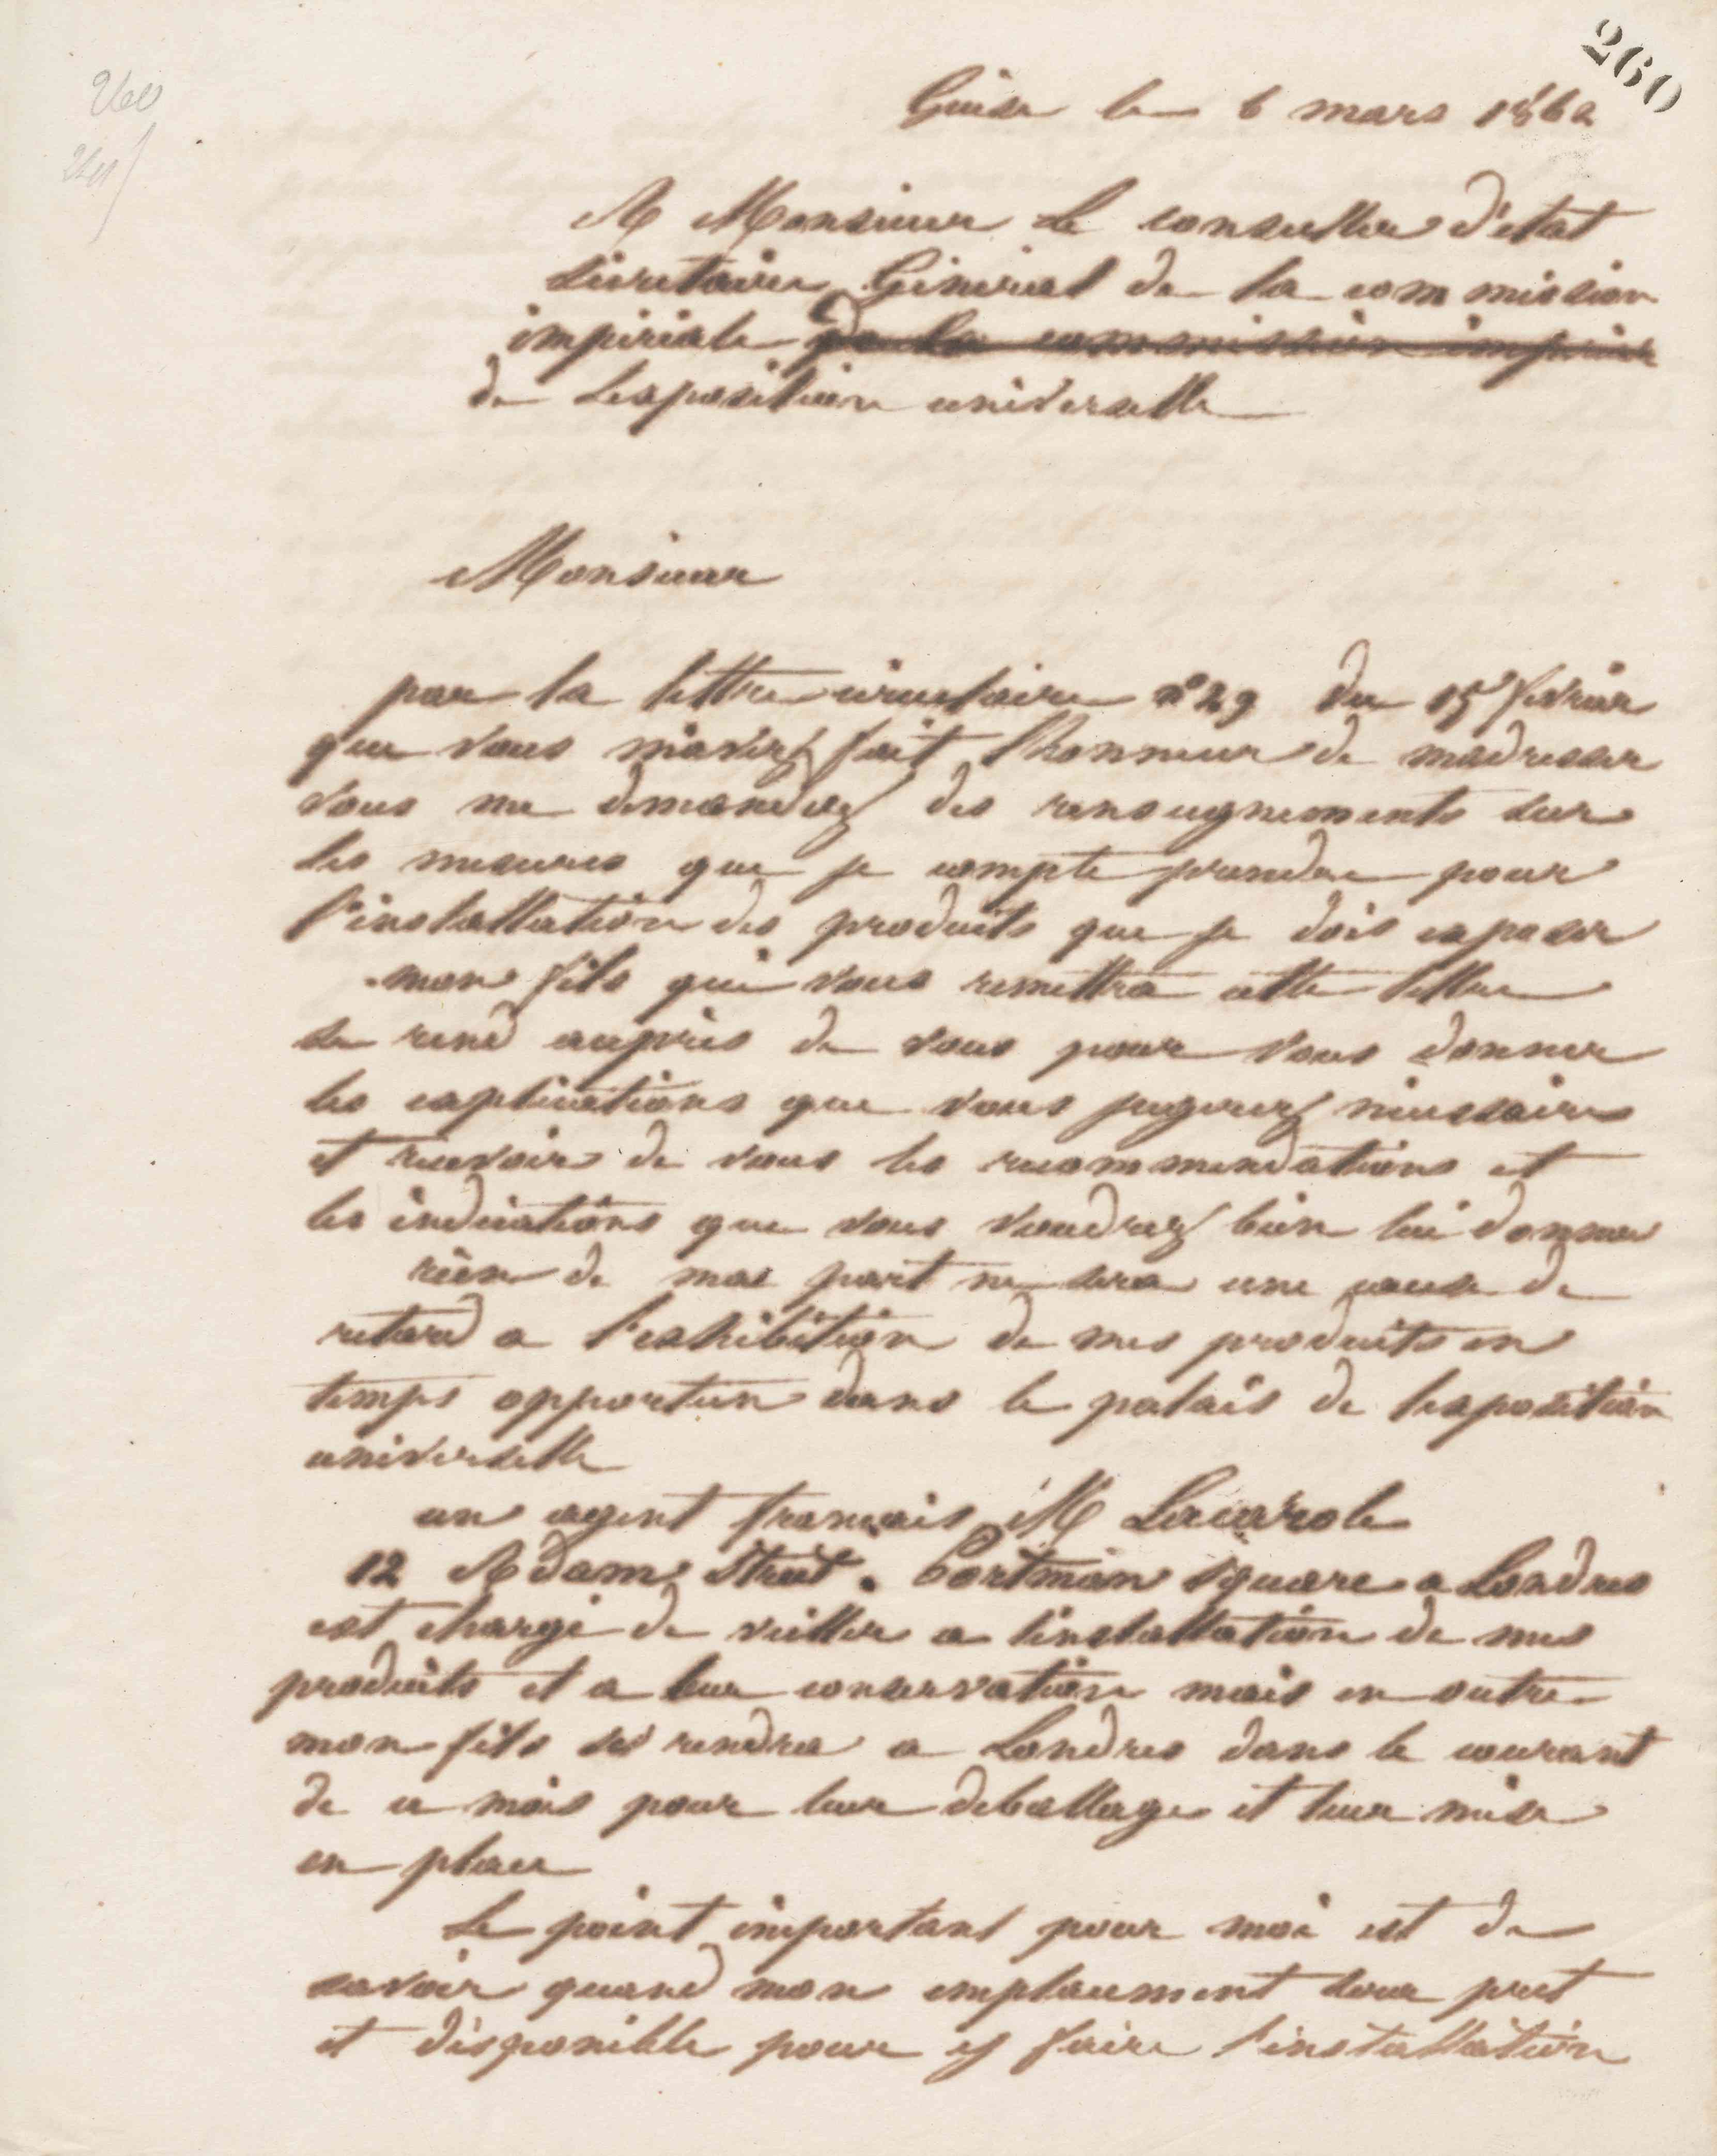 260
260
Guise le 6 mars 1862
A Monsieur Le conseiller d'état
Secretaire Général de la commission
impériale de la commission impériale
de Lexposition universelle
Monsieur
par la lettre circulaire n° 29 du 15 fevrier
que vous m'avez fait l'honneur de madresser
vous me demandez des renseignements sur
les mesures que je compte prendre pour
l'installation des produits que je dois exposer
mon fils qui vous remettra cette lettre
se rend auprès de vous pour vous donner
les explications que vous jugerez nécessaires
et recevoir de vous les recommendations et
les indications que vous voudrez bien lui donner
rien de ma part ne sera une cause de
retard a l'exhibition de mes produits en
temps opportun dans le palais de lexposition
universelle
un agent français M
12 Adam Street. Portman square a Londres
est chargé de veiller a linstallation de mes
produits et a leur conservation mais en outre
mon fils se rendra a Londres dans le courant
de ce mois pour leur deballage et leur mise
en place
Le point important pour moi est de
savoir quand mon emplacement sera pret
et disponible pour y faire l'installation